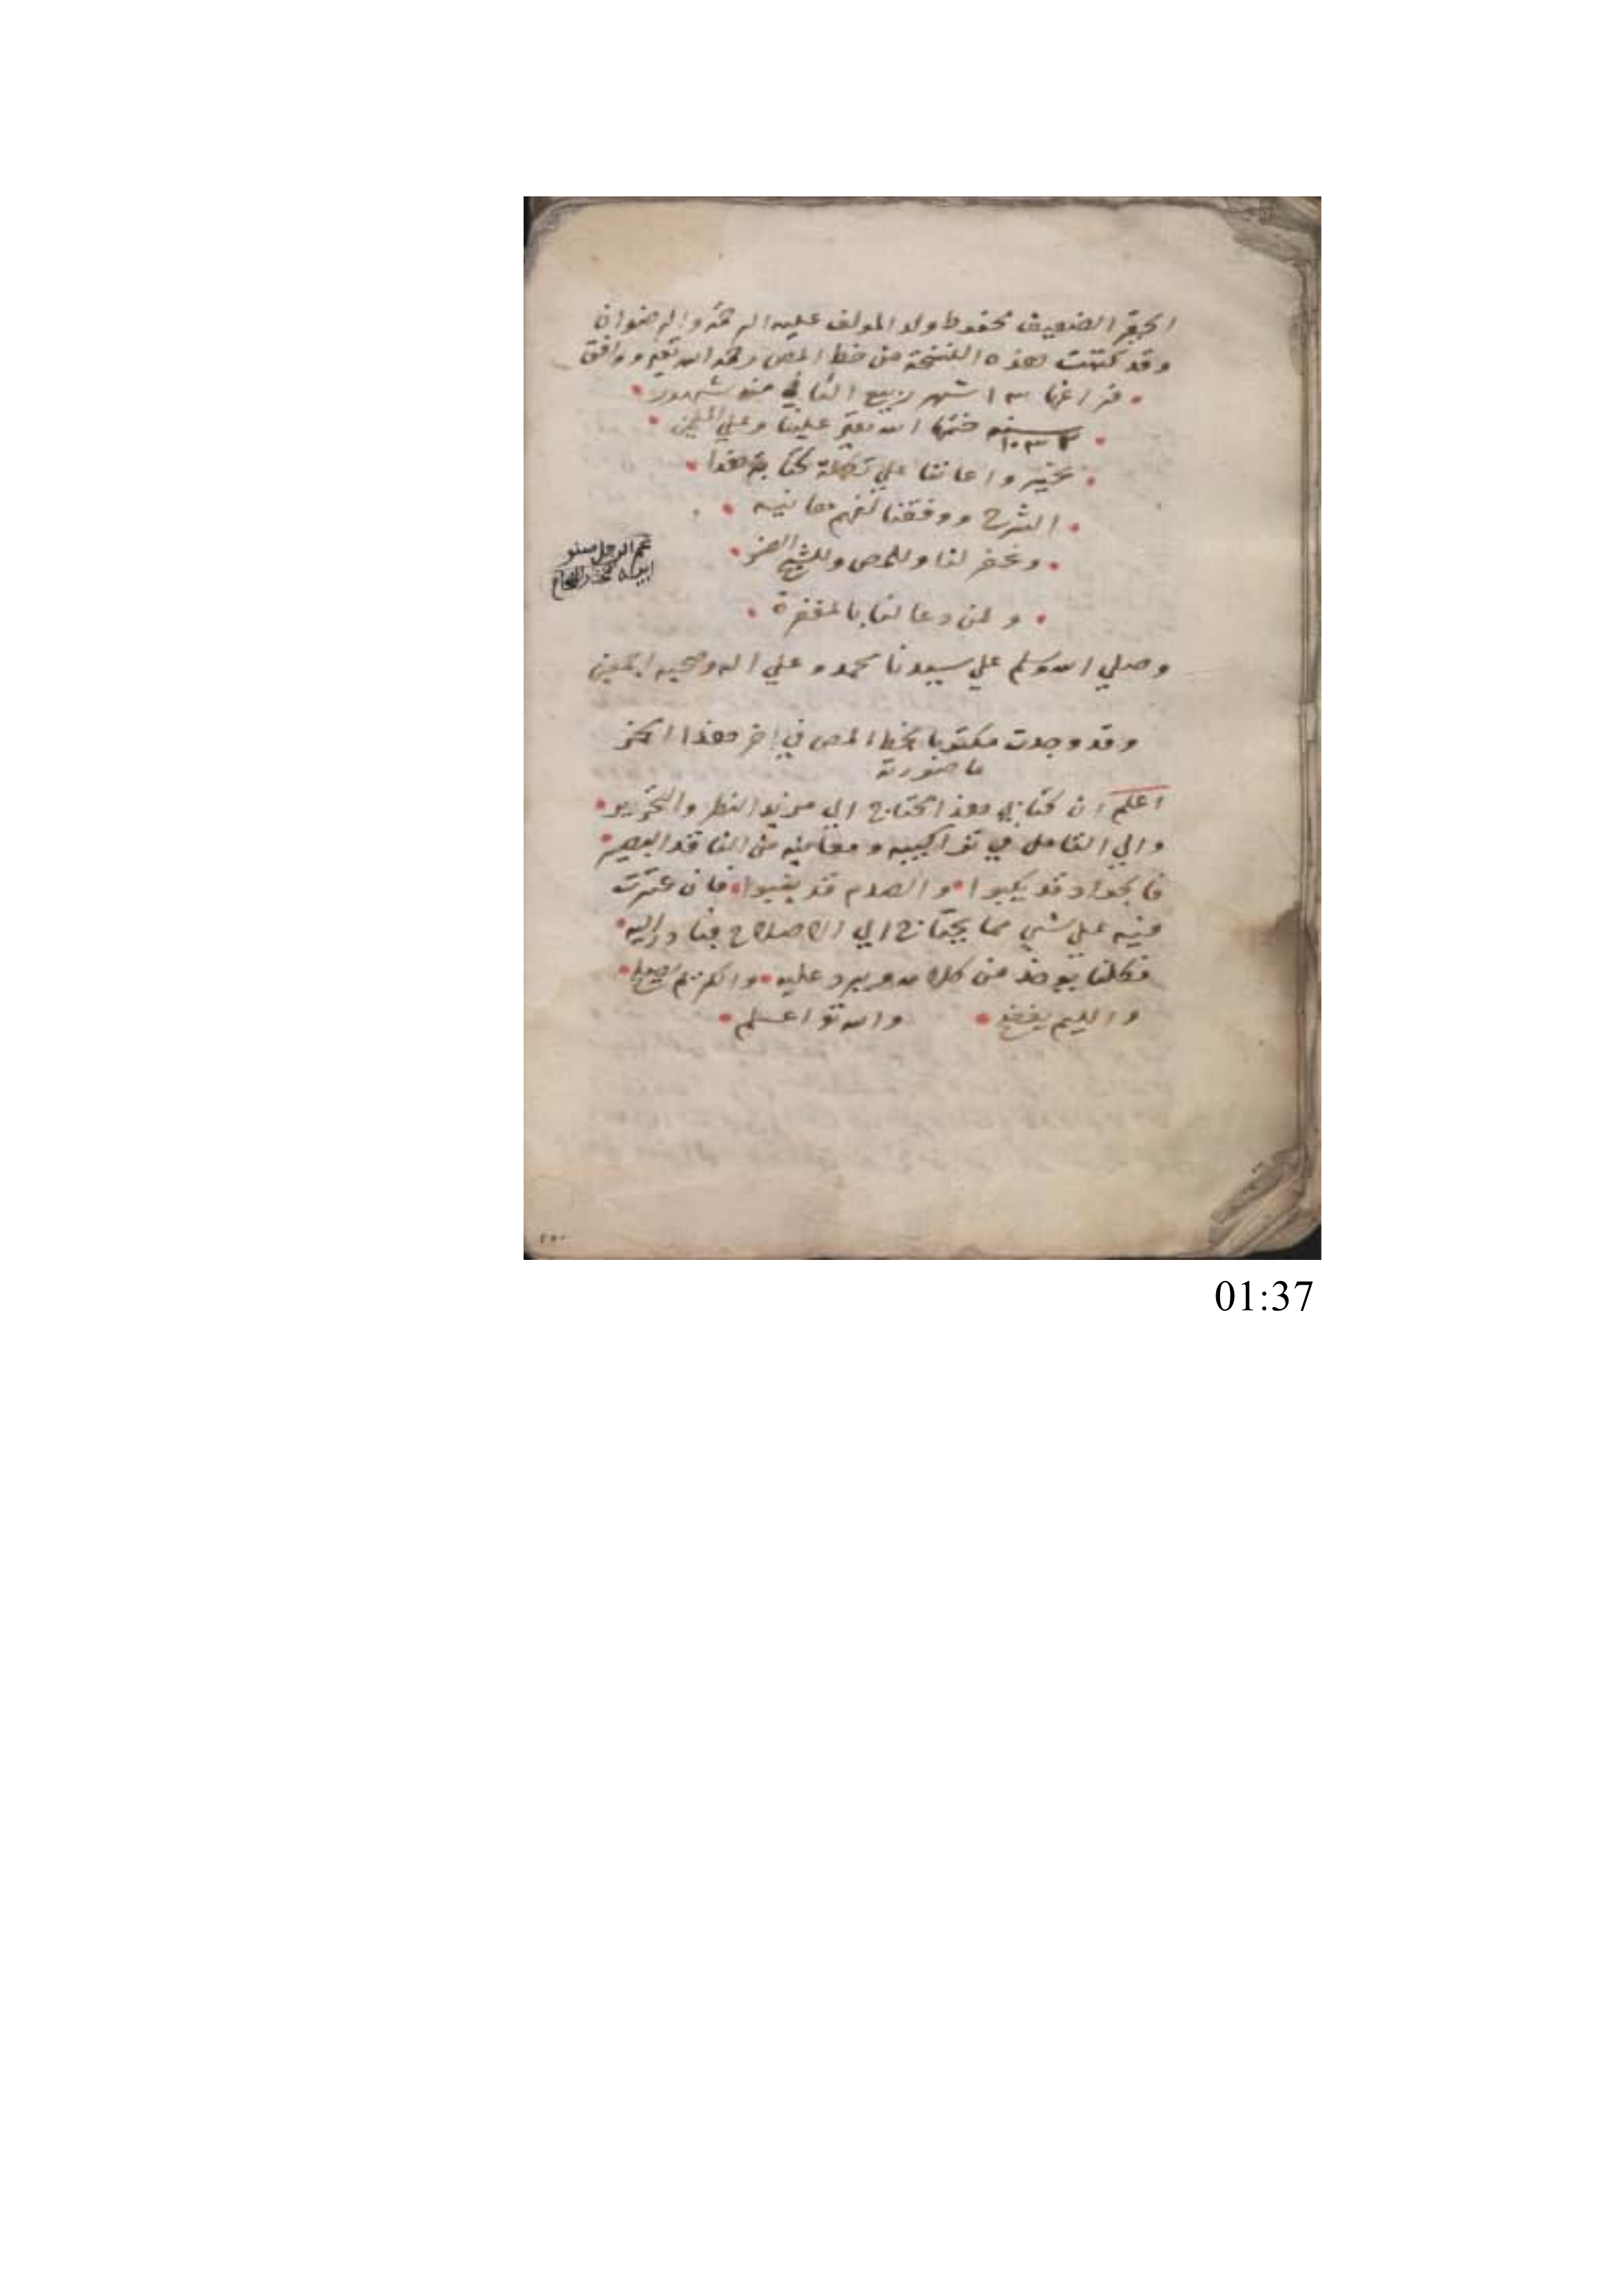 الحقير الضعيف محفوظ ولد المولف عليه الرحمة والرضوان
وقد كتبت هذه النسخة من خط المص رحمه الله تعم ووافق
فراغها ١٣ شهر ربيع الثاني من شهور
سنه ١٠٣٣ ختمها الله تعم علينا وعلي المسلمين
بخير واعاننا علي تكملة كتابة هذا
الشرح ووفقنا لفهم معانيه
وغفر لنا وللمص وللشيخ
ولمن دعا لنا بالمغفرة
عم الرجل صنو
ابيه
وصلي الله وسلم علي سيدنا محمد وعلي اله وصحبه اجمعين
وقد وجدت مكتوبا بخط المص في اخر هذا الجز
ما صورته
اعلم ان كتابي هذا محتاج الي مزيد النظر والتحرير
والي التامل في تراكيبه ومعانيه من الناقد البصير
فالجواد قد يكبوا والصارم قد ينبوا فان عثرت
فيه علي شي مما يحتاج الي الاصلاح فبادر اليه
فكلنا يوخذ من كلامه ويرد عليه والكريم يصلح
والليم يفضح والله تع اعلم
٢٥٠
01:37